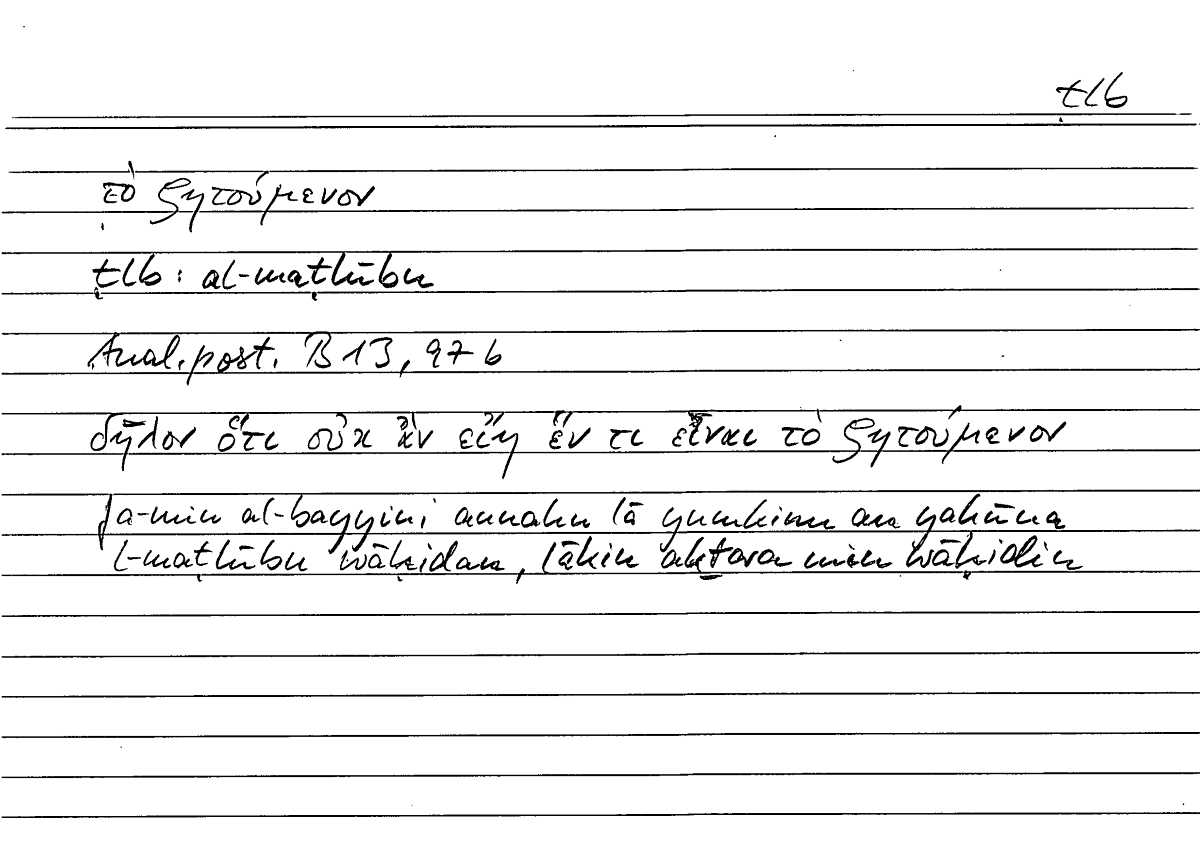 ṭlb
τὸ ζητούμενον
ṭlb : al-maṭlūbu
Anal. post. B 13, 97 b
δῆλον ὅτι οὐκ ἂν εἴη ἕν τι εἶναι τὸ ζητούμενον
fa-min al-bayyini annahu lā yumkinu an yakūna
l-maṭlūbu wāḥidan, lākin akṯara min wāḥidin